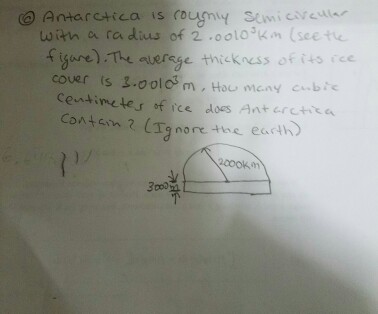 ⑥ Antarctica is roughly Semicircular
with a radius of 2.0010³Km (see the
figure). The average thickness of its ice
cover is 3.0010³m. How many cubic
Centimeters of ice does Antarctica
Contain? (Ignore the earth)
2000Km
3000m